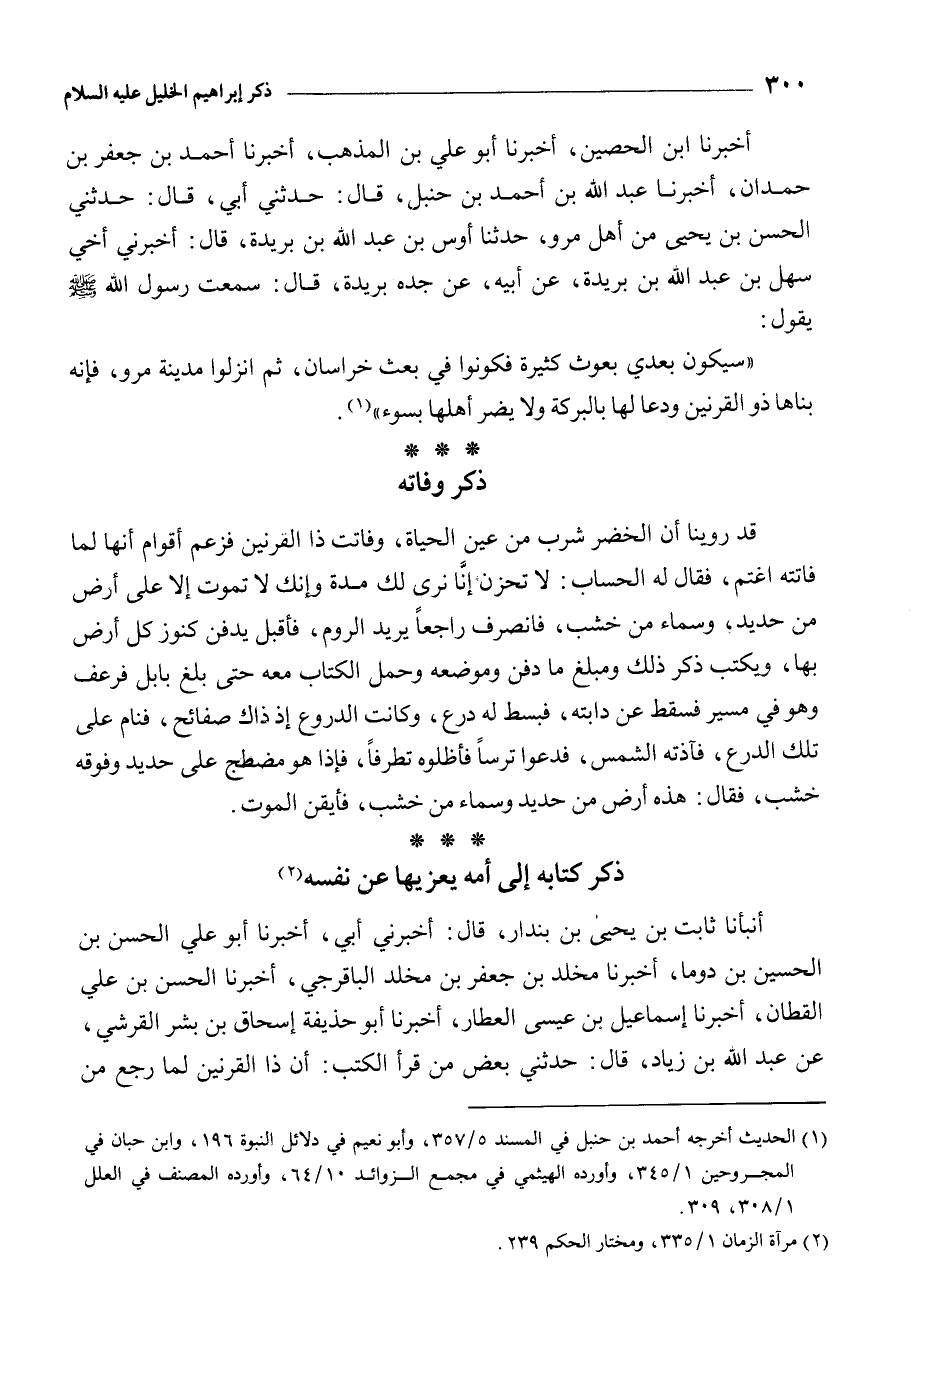 ٣٠٠ ذكر إبراهيم الخليل عليه السلام
أخبرنا ابن الحصين، أخبرنا أبو علي بن المذهب، أخبرنا أحمد بن جعفر بن
حمدان، أخبرنا عبد الله بن أحمد بن حنبل، قال: حدثني أبي، قال: حدثني
الحسن بن يحيى من أهل مرو، حدثنا أوس بن عبد الله بن بريدة، قال: أخبرني أخي
سهل بن عبد الله بن بريدة، عن أبيه، عن جده بريدة، قال: سمعت رسول الله ﷺ
يقول:
«سيكون بعدي بعوث كثيرة فكونوا في بعث خراسان، ثم انزلوا مدينة مرو، فإنه
بناها ذو القرنين ودعا لها بالبركة ولا يضر أهلها بسوء»(١).
* * *
ذكر وفاته
قد روينا أن الخضر شرب من عين الحياة، وفاتت ذا القرنين فزعم أقوام أنها لما
فاتته اغتم، فقال له الحساب: لا تحزن إنَّا نرى لك مدة وإنك لا تموت إلا على أرض
من حديد، وسماء من خشب، فانصرف راجعاً يريد الروم، فأقبل يدفن كنوز كل أرض
بها، ويكتب ذكر ذلك ومبلغ ما دفن وموضعه وحمل الكتاب معه حتى بلغ بابل فرعف
وهو في مسير فسقط عن دابته، فبسط له درع، وكانت الدروع إذ ذاك صفائح، فنام على
تلك الدرع، فآذته الشمس، فدعوا ترساً فأظلوه تطرفاً، فإذا هو مضطج على حديد وفوقه
خشب، فقال: هذه أرض من حديد وسماء من خشب، فأيقن الموت.
* * *
ذكر كتابه إلى أمه يعزيها عن نفسه(٢)
أنبأنا ثابت بن يحيىٰ بن بندار، قال: أخبرني أبي، أخبرنا أبو علي الحسن بن
الحسين بن دوما، أخبرنا مخلد بن جعفر بن مخلد الباقرجي، أخبرنا الحسن بن علي
القطان، أخبرنا إسماعيل بن عيسى العطار، أخبرنا أبو حذيفة إسحاق بن بشر القرشي،
عن عبد الله بن زياد، قال: حدثني بعض من قرأ الكتب: أن ذا القرنين لما رجع من
(١) الحديث أخرجه أحمد بن حنبل في المسند ٣٥٧/٥، وأبو نعيم في دلائل النبوة ١٩٦، وابن حبان في
المجروحين ٣٤٥/١، وأورده الهيثمي في مجمع الزوائد ٦٤/١٠، وأورده المصنف في العلل
٣٠٨/١، ٣٠٩.
(٢) مرآة الزمان ٣٣٥/١، ومختار الحكم ٢٣٩.